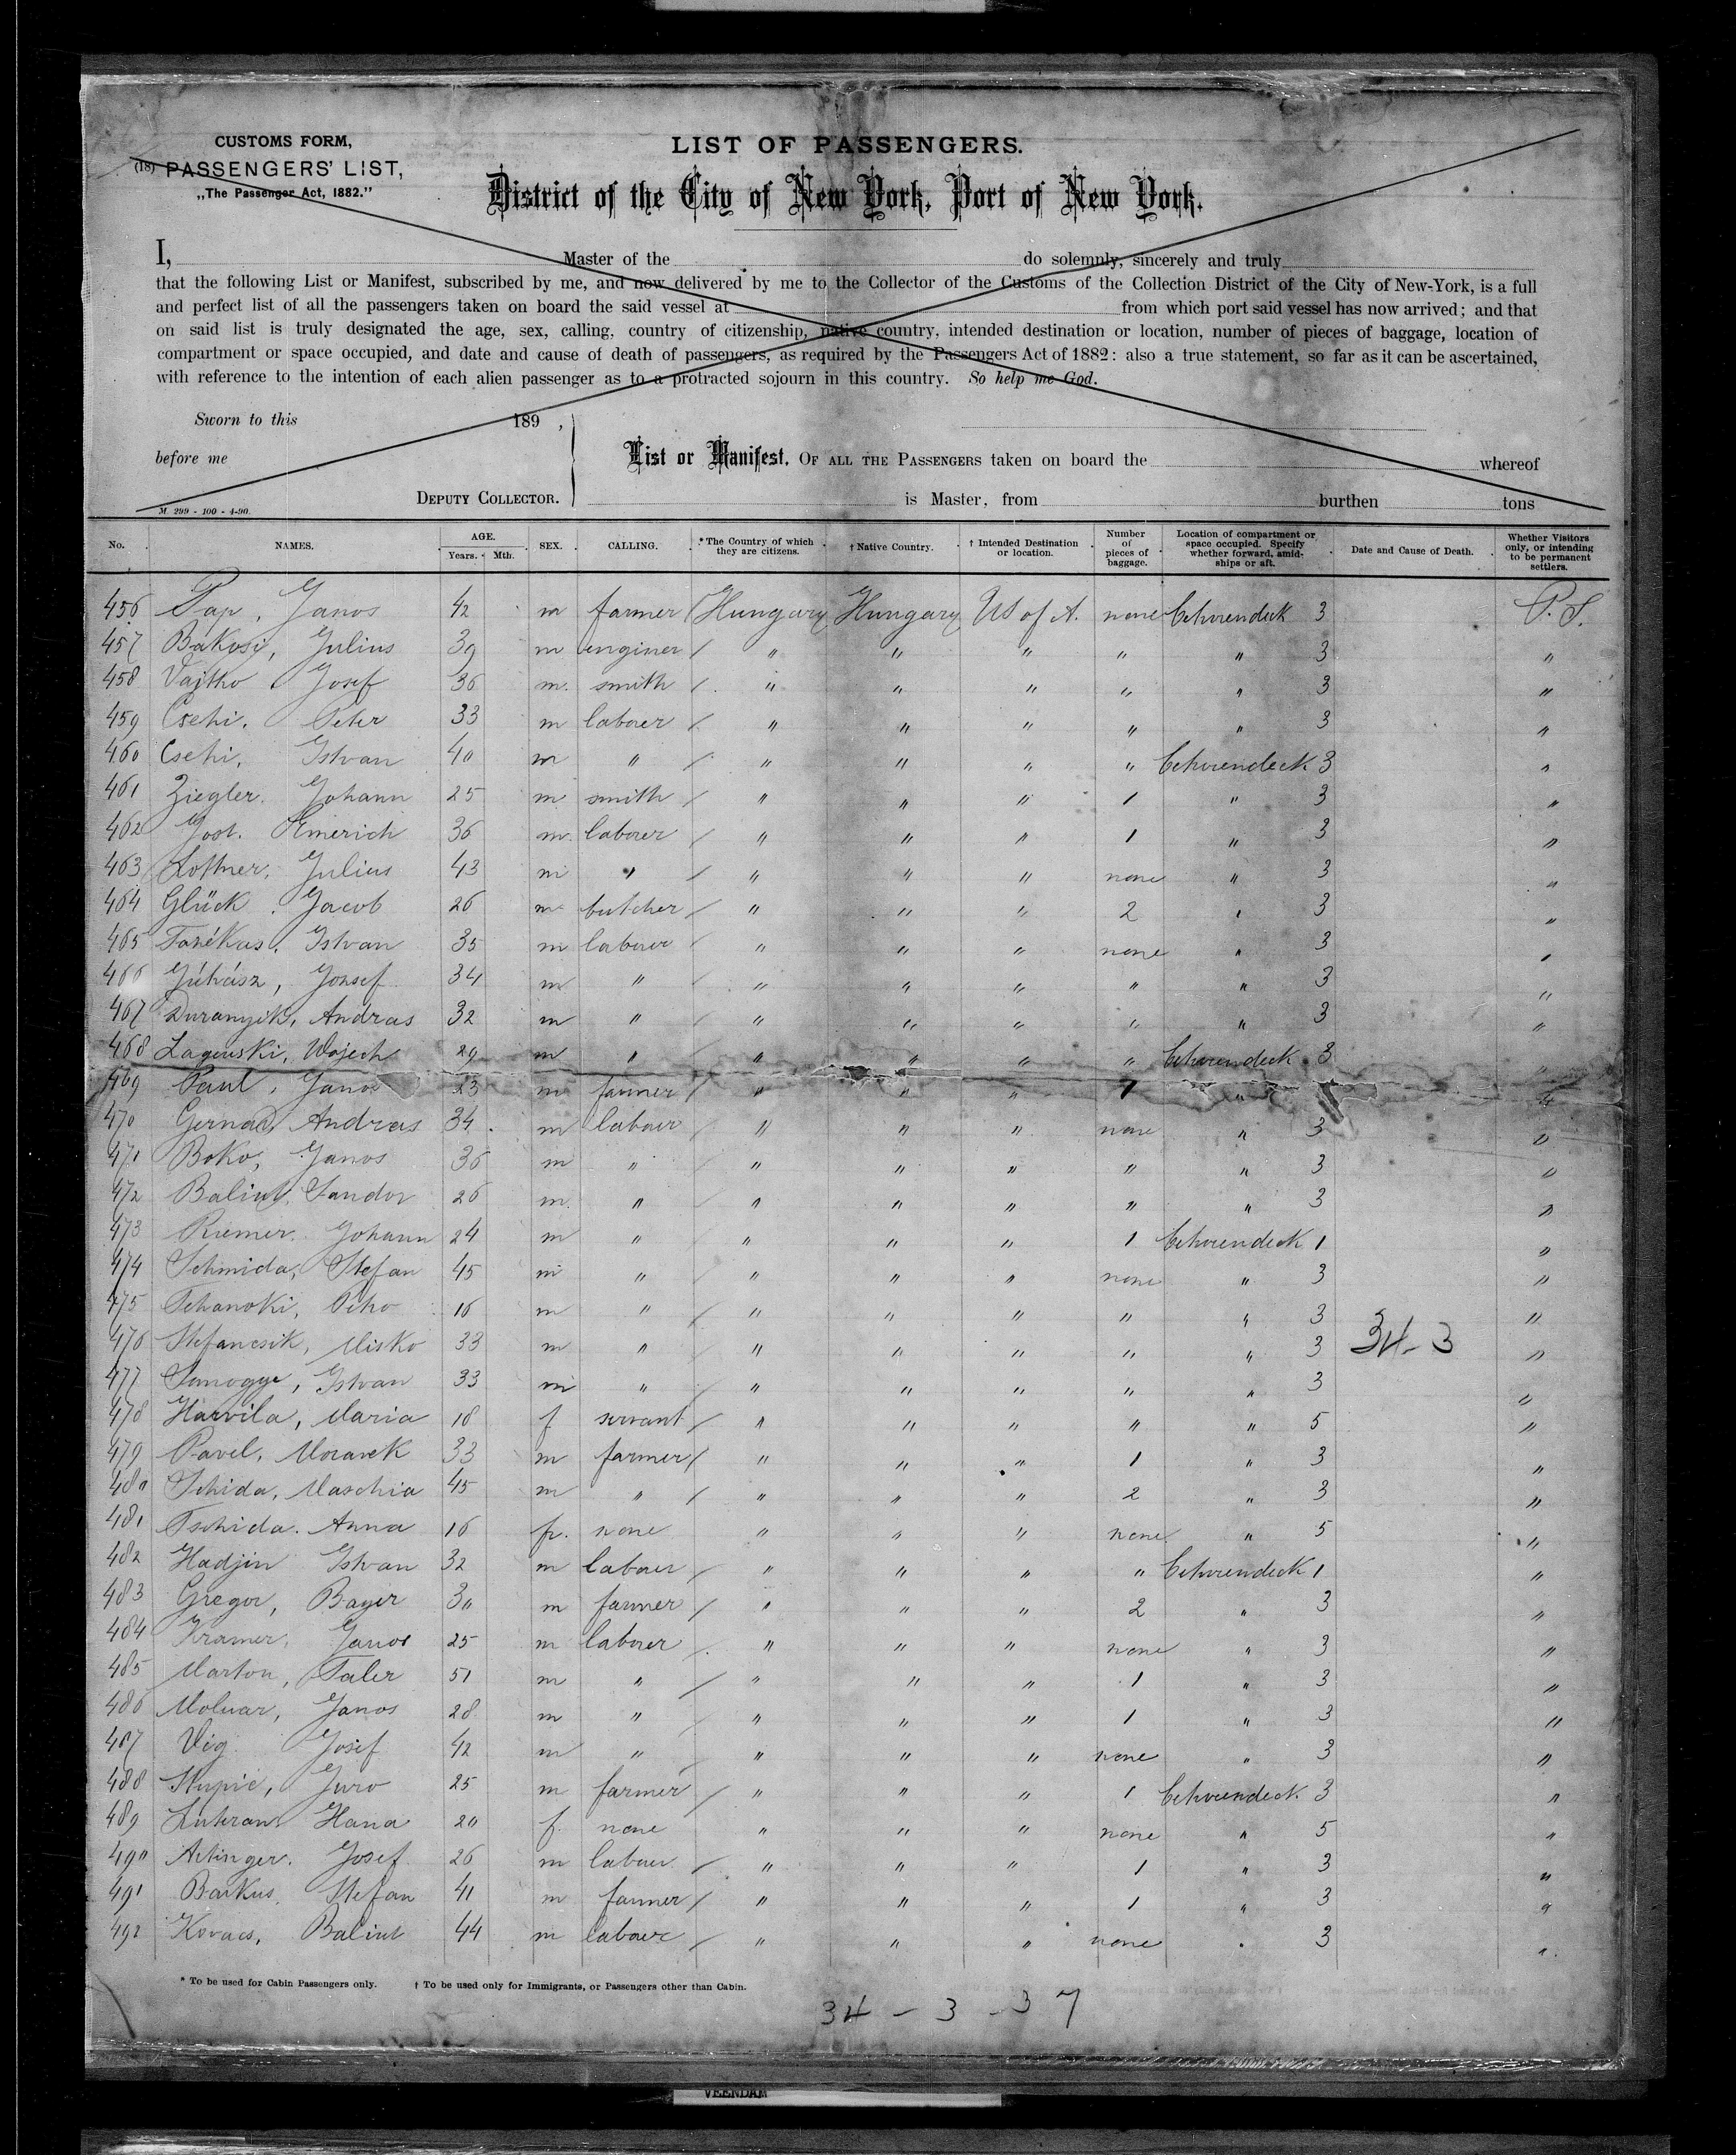 CUSTOMS FORM,
(18) PASSENGERS' LIST,
„The Passenger Act, 1882."
LIST OF PASSENGERS.
District of the City of New York, Port of New York.
I, Master of the do solemnly, sincerely and truly
that the following List or Manifest, subscribed by me, and now delivered by me to the Collector of the Customs of the Collection District of the City of New-York, is a full
and perfect list of all the passengers taken on board the said vessel at from which port said vessel has now arrived; and that
on said list is truly designated the age, sex, calling, country of citizenship, native country, intended destination or location, number of pieces of baggage, location of
compartment or space occupied, and date and cause of death of passengers, as required by the Passengers Act of 1882: also a true statement, so far as it can be ascertained,
with reference to the intention of each alien passenger as to a protracted sojourn in this country. So help me God.
Sworn to this 189 ,
before me
List or Manifest, OF ALL THE PASSENGERS taken on board the whereof
DEPUTY COLLECTOR. is Master, from burthen tons
M. 299 - 100 - 4-90.
No. NAMES. AGE. Years. Mth. SEX. CALLING. * The Country of which they are citizens. † Native Country. † Intended Destination or location. Number of pieces of baggage. Location of compartment or space occupied. Specify whether forward, amidships or aft. Date and Cause of Death. Whether Visitors only, or intending to be permanent settlers.
456 Pap, Janos 42 m farmer / Hungary Hungary US of A. none 3 P. S.
457 Bakosi, Julius 39 m enginer / " " " " " 3 "
458 Vajtho, Josef 36 m. smith / " " " " " 3 "
459 Csehi, Peter 33 m laborer / " " " " " 3 "
460 Csehi, Istvan 40 m " / " " " " 3 "
461 Ziegler, Johann 25 m smith / " " " 1 " 3 "
462 Jost. Emerich 36 m. laborer / " " " 1 " 3 "
463 Julius 43 m " / " " " none " 3 "
464 Glück, Jacob 26 m butcher / " " " 2 " 3 "
465 Istvan 35 m laborer / " " " none " 3 "
466 Júhász, Jozsef 34 m " / " " " " " 3 "
467 Duranyik, Andras 32 m " / " " " " " 3 "
468 Wojech 29 m " " " " " 3 "
469 Paul, Janos 23 m farmer / " " " 1 " "
470 Andras 34 m labourer / " " " none " 3 "
471 Boko, Janos 36 m " / " " " " " 3 "
472 Balint, Sandor 26 m. " / " " " " " 3 "
473 Riemer, Johann 24 m " / " " " 1 1 "
474 Schmida, Stefan 45 m " / " " " none " 3 "
475 Tchanoki, 16 m " / " " " " " 3 "
476 Stefancsik, Misko 33 m " / " " " " " 3 34-3 "
477 Somogye, Istvan 33 m " / " " " " " 3 "
478 Harvila, Maria 18 f servant / " " " " " 5 "
479 Pavel, Moravek 33 m farmer / " " " 1 " 3 "
480 Schida, Maschia 45 m " / " " " 2 " 3 "
481 Tschida. Anna 16 f. none " " " none " 5 "
482 Hadjin Istvan 32 m labouer / " " " " 1 "
483 Gregor, Bayer 30 m farmer / " " " 2 " 3 "
484 Kramer, Janos 25 m laborer / " " " none " 3 "
485 Marton, Taler 51 m " / " " " 1 " 3 "
486 Molnar, Janos 28 m " / " " " 1 " 3 "
487 Vig Josif 42 m " / " " " none " 3 "
488 Stupic, Juro 25 m farmer / " " " 1 3 "
489 Hana 20 f. none " " " none " 5 "
490 Artinger. Josef 26 m labouer / " " " 1 " 3 "
491 Barkus, Stefan 41 m farmer / " " " 1 " 3 "
492 Kovacs, Balint 44 m labouer / " " " none " 3 "
* To be used for Cabin Passengers only. † To be used only for Immigrants, or Passengers other than Cabin.
34 - 3 - 37
VEENDAM